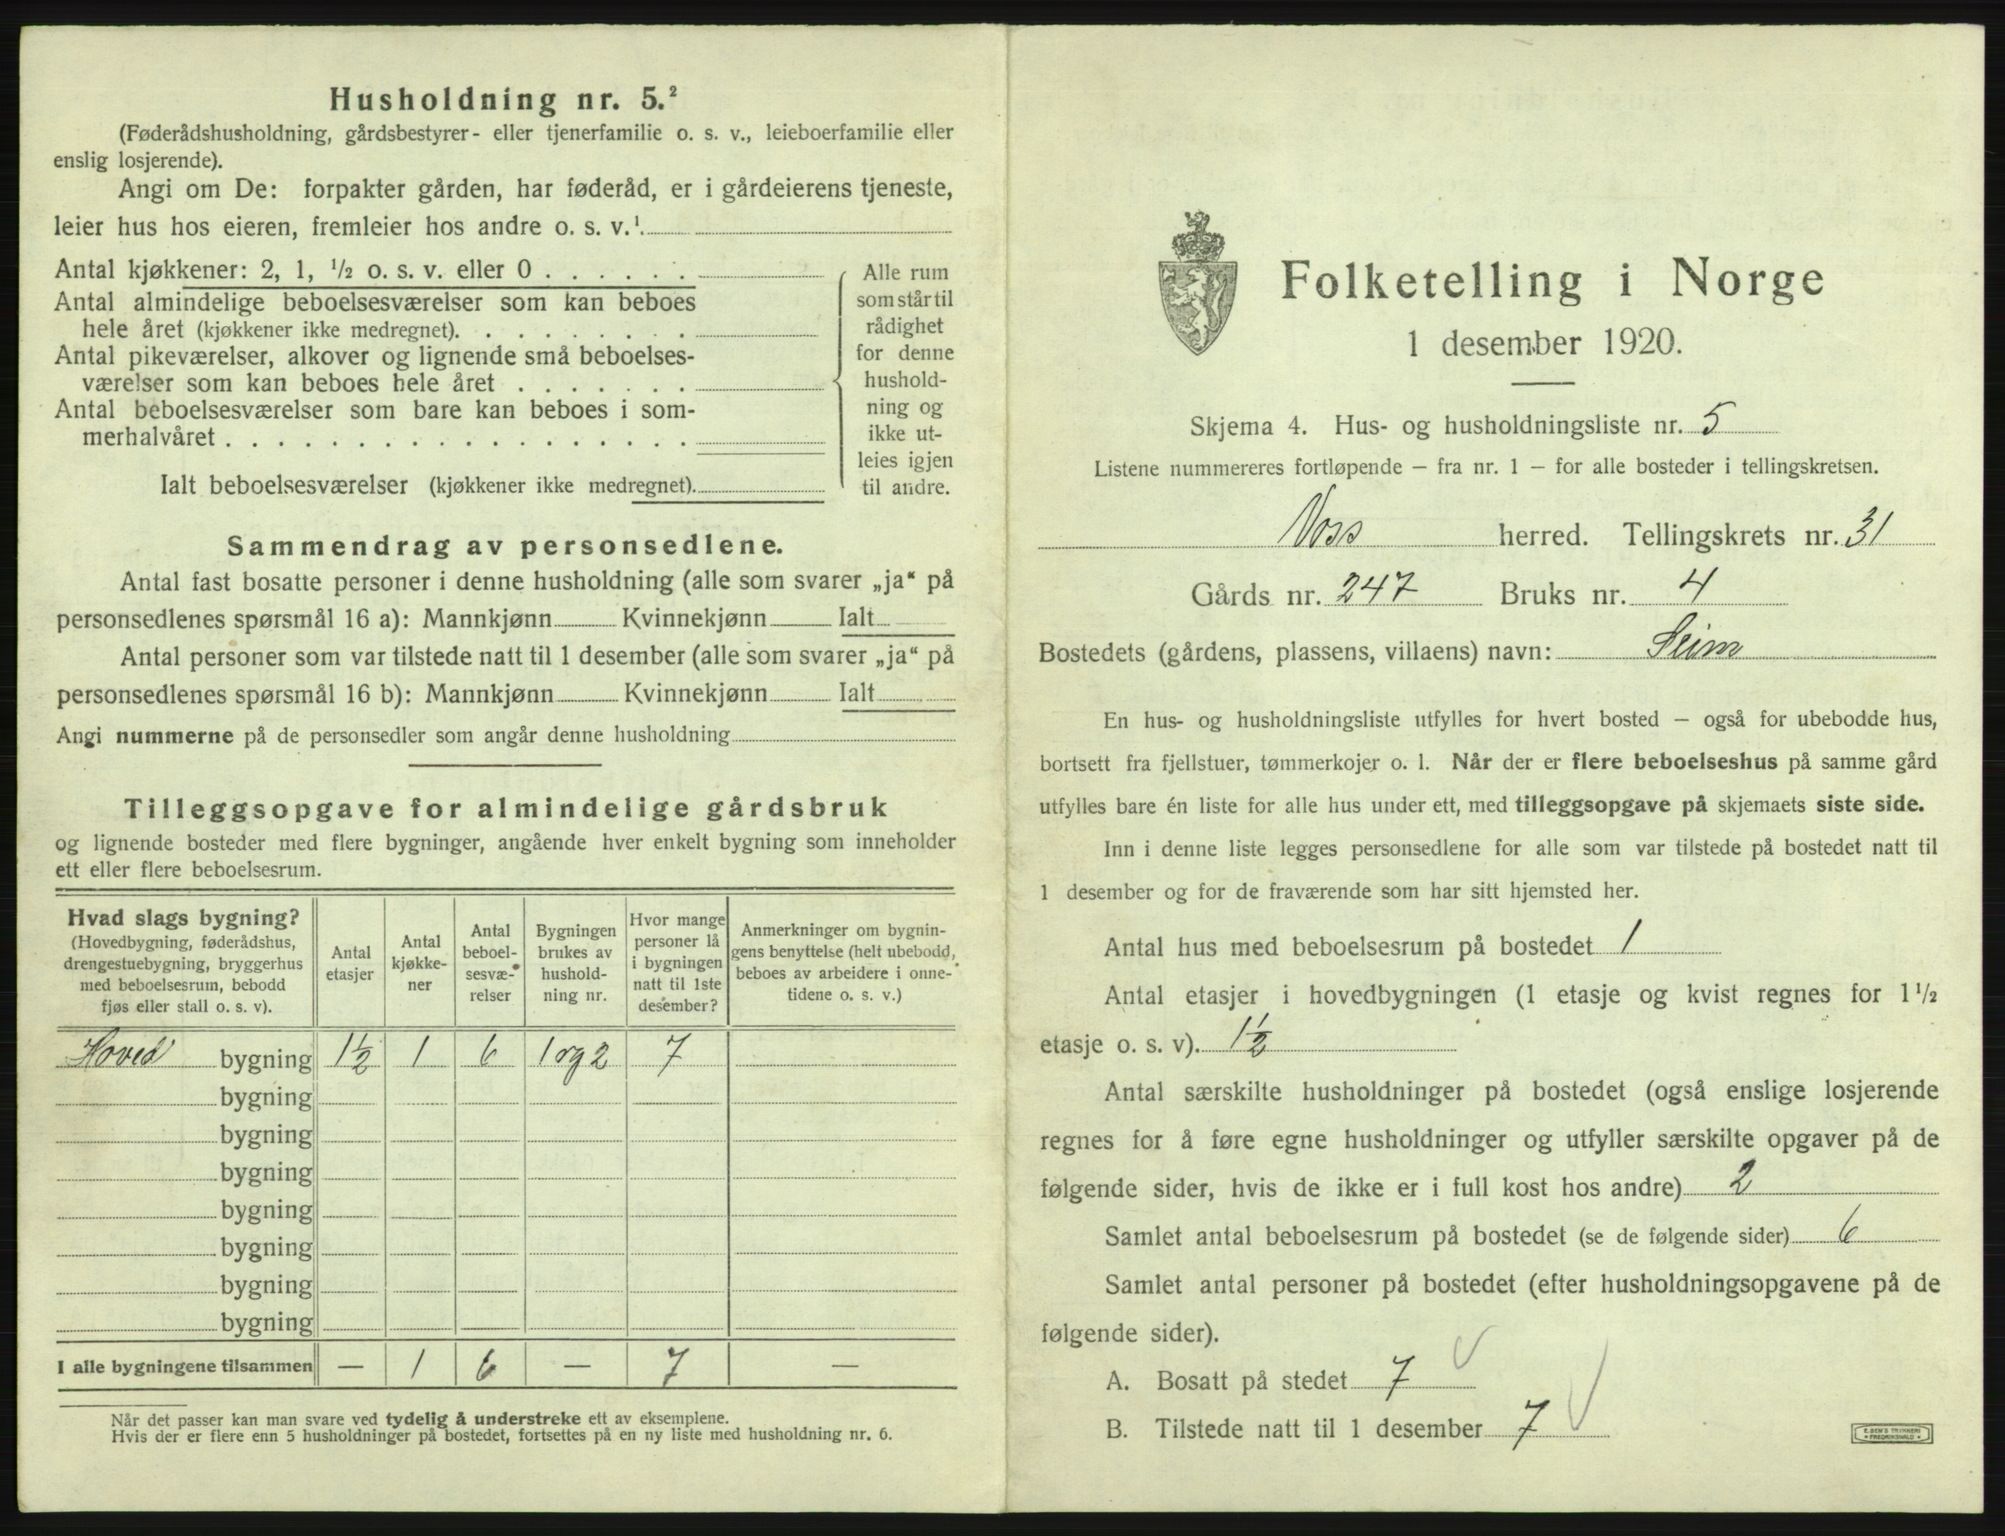 Husholdning nr. 5.²
(Føderådshusholdning, gårdsbestyrer- eller tjenerfamilie o. s. v., leieboerfamilie eller
enslig losjerende).
Angi om De: forpakter gården, har føderåd, er i gårdeierens tjeneste,
leier hus hos eieren, fremleier hos andre o. s. v.¹
Antal kjøkkener: 2, 1, ½ o. s. v. eller 0 . . . . . .
Antal almindelige beboelsesværelser som kan beboes
hele året (kjøkkener ikke medregnet). . . . . . . . .
Antal pikeværelser, alkover og lignende små beboelses-
værelser som kan beboes hele året . . . . . . .
Antal beboelsesværelser som bare kan beboes i som-
merhalvåret . . . . . . . . . . . . . . . . . .
Ialt beboelsesværelser (kjøkkener ikke medregnet).
Alle rum
som står til
rådighet
for denne
hushold-
ning og
ikke ut-
leies igjen
til andre.
Sammendrag av personsedlene.
Antal fast bosatte personer i denne husholdning (alle som svarer „ja“ på
personsedlenes spørsmål 16 a): Mannkjønn Kvinnekjønn Ialt
Antal personer som var tilstede natt til 1 desember (alle som svarer „ja“ på
personsedlenes spørsmål 16 b): Mannkjønn Kvinnekjønn Ialt
Angi nummerne på de personsedler som angår denne husholdning
Tilleggsopgave for almindelige gårdsbruk
og lignende bosteder med flere bygninger, angående hver enkelt bygning som inneholder
ett eller flere beboelsesrum.
Hvad slags bygning?
(Hovedbygning, føderådshus,
drengestuebygning, bryggerhus
med beboelsesrum, bebodd
fjøs eller stall o. s. v).
Antal
etasjer
Antal
kjøkke-
ner
Antal
beboel-
sesvæ-
relser
Bygningen
brukes av
hushold-
ning nr.
Hvor mange
personer lå
i bygningen
natt til 1ste
desember?
Anmerkninger om bygnin-
gens benyttelse (helt ubebodd,
beboes av arbeidere i onne-
tidene o. s. v.)
Hoved bygning 1½ 1 6 1 og 2 7
bygning
bygning
bygning
bygning
bygning
bygning
bygning
I alle bygningene tilsammen — 1 6 — 7 —
Når det passer kan man svare ved tydelig å understreke ett av eksemplene.
Hvis der er flere enn 5 husholdninger på bostedet, fortsettes på en ny liste med husholdning nr. 6.
Folketelling i Norge
1 desember 1920.
Skjema 4. Hus- og husholdningsliste nr. 5
Listene nummereres fortløpende — fra nr. 1 — for alle bosteder i tellingskretsen.
Voss herred. Tellingskrets nr. 31
Gårds nr. 247 Bruks nr. 4
Bostedets (gårdens, plassens, villaens) navn: Seim
En hus- og husholdningsliste utfylles for hvert bosted — også for ubebodde hus,
bortsett fra fjellstuer, tømmerkojer o. l. Når der er flere beboelseshus på samme gård
utfylles bare én liste for alle hus under ett, med tilleggsopgave på skjemaets siste side.
Inn i denne liste legges personsedlene for alle som var tilstede på bostedet natt til
1 desember og for de fraværende som har sitt hjemsted her.
Antal hus med beboelsesrum på bostedet 1
Antal etasjer i hovedbygningen (1 etasje og kvist regnes for 1½
etasje o. s. v). 1½
Antal særskilte husholdninger på bostedet (også enslige losjerende
regnes for å føre egne husholdninger og utfyller særskilte opgaver på de
følgende sider, hvis de ikke er i full kost hos andre) 2
Samlet antal beboelsesrum på bostedet (se de følgende sider) 6
Samlet antal personer på bostedet (efter husholdningsopgavene på de
følgende sider).
A. Bosatt på stedet 7
B. Tilstede natt til 1 desember 7
E. SEM'S TRYKKERI
FREDRIKSHALD